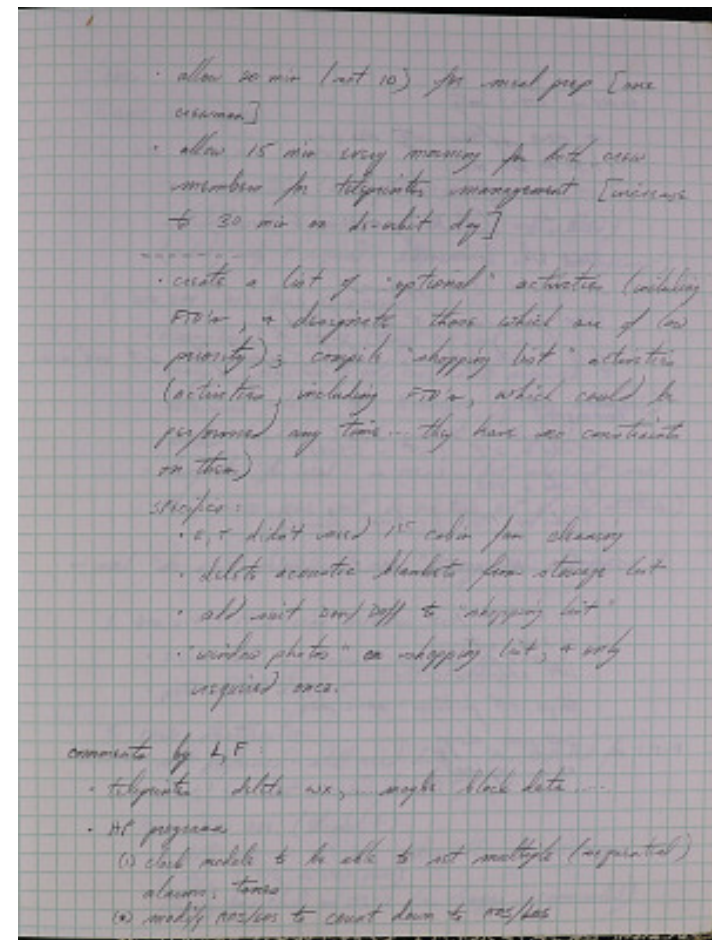 · allow 20 min (not 10) for meal prep [one
crewman]
· allow 15 min every morning for both crew
members for teleprinter management [increase
to 30 min on de-orbit day]
-------
· create a list of "optional" activities (including
FTO's, + designate those which are of low
priority); compile "shopping list" activities
(activities, including FTO's, which could be
performed any time... they have no constraints
on them)
specifics:
· didn't need 1st cabin fan cleaning
· delete acoustic blankets from stowage list
· add suit Don/Doff to "shopping list"
· "window photos" on shopping list, + only
required once.
comments by L, F:
· teleprinter delete wx, ... maybe block data ....
· HP program
(1) clock module to be able to set multiple (sequential)
alarms, tones
(2) modify AOS/LOS to count down to AOS/LOS